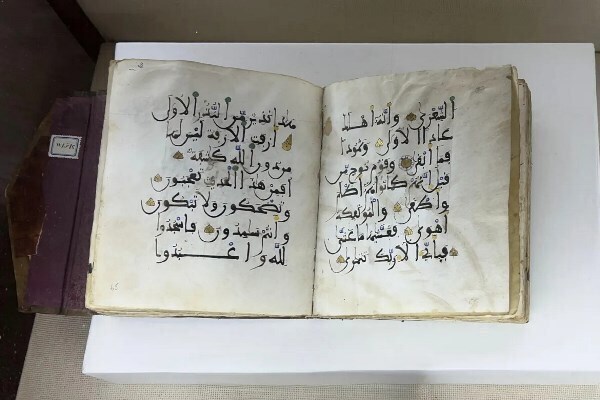 الشعرى وأنه أهلك
عادا الاولى وثمودا
فما أبقى وقوم نوح من
قبل إنهم كانوا هم أظلم
وأطغى والموتفكة
أهوى فغشيها ما غشى
فبأي ءالاء ربك تتمارى
هذا نذير من النذر الاولى
أزفت الازفة ليس لها
من دون الله كاشفة
أفمن هذا الحديث تعجبون
وتضحكون ولا تبكون
وأنتم سمدون فاسجدوا
لله واعبدوا